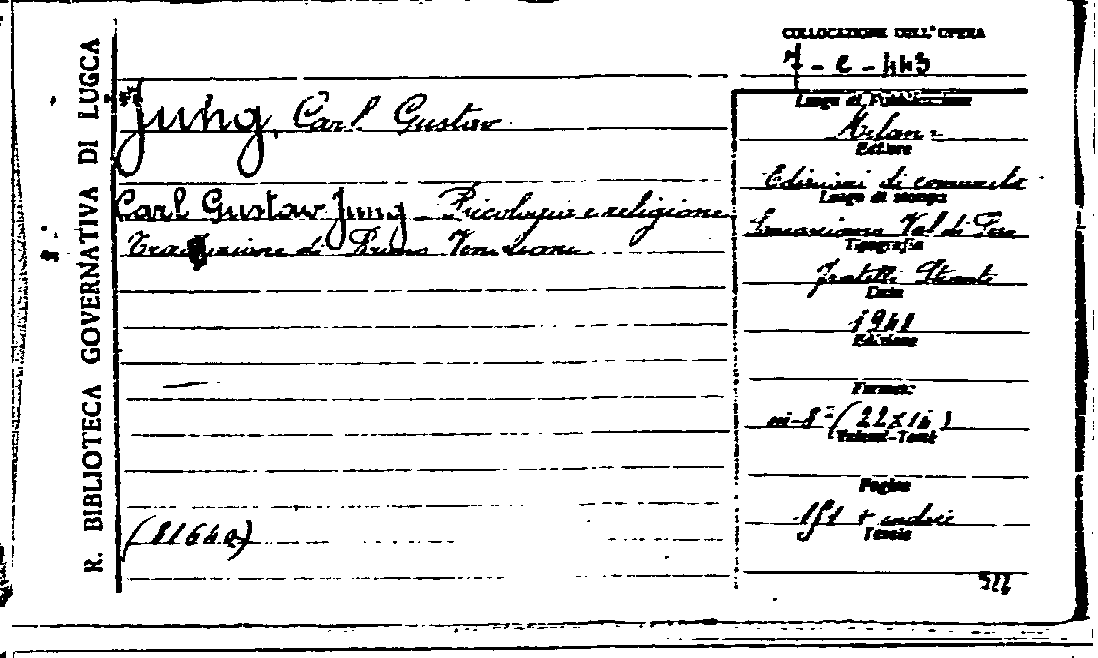 R. BIBLIOTECA GOVERNATIVA DI LUCCA
COLLOCAZIONE DELL'OPERA
7 - C - 443
Jung, Carl Gustav
Carl Gustav Jung - Psicologia e religione
Traduzione di Bruno Veneziani
(81640)
Luogo di Pubblicazione
Milano
Editore
Edizioni di comunità
Luogo di stampa
Val di Pesa
Tipografia
Fratelli Stianti
Data
1948
Edizione
Formato
in-8° (22X16)
Volumi-Tomi
Pagine
+ indice
Tavole